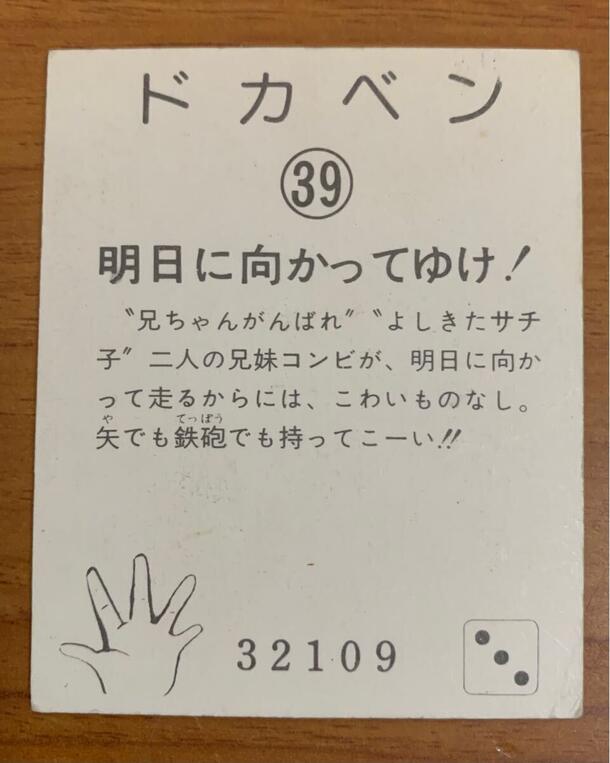 ドカベン
39
明日に向かってゆけ!
〝兄ちゃんがんばれ〞〝よしきたサチ
子〞二人の兄妹コンビが、明日に向か
って走るからには、こわいものなし。
や てっぽう
矢でも鉄砲でも持ってこーい!!
32109